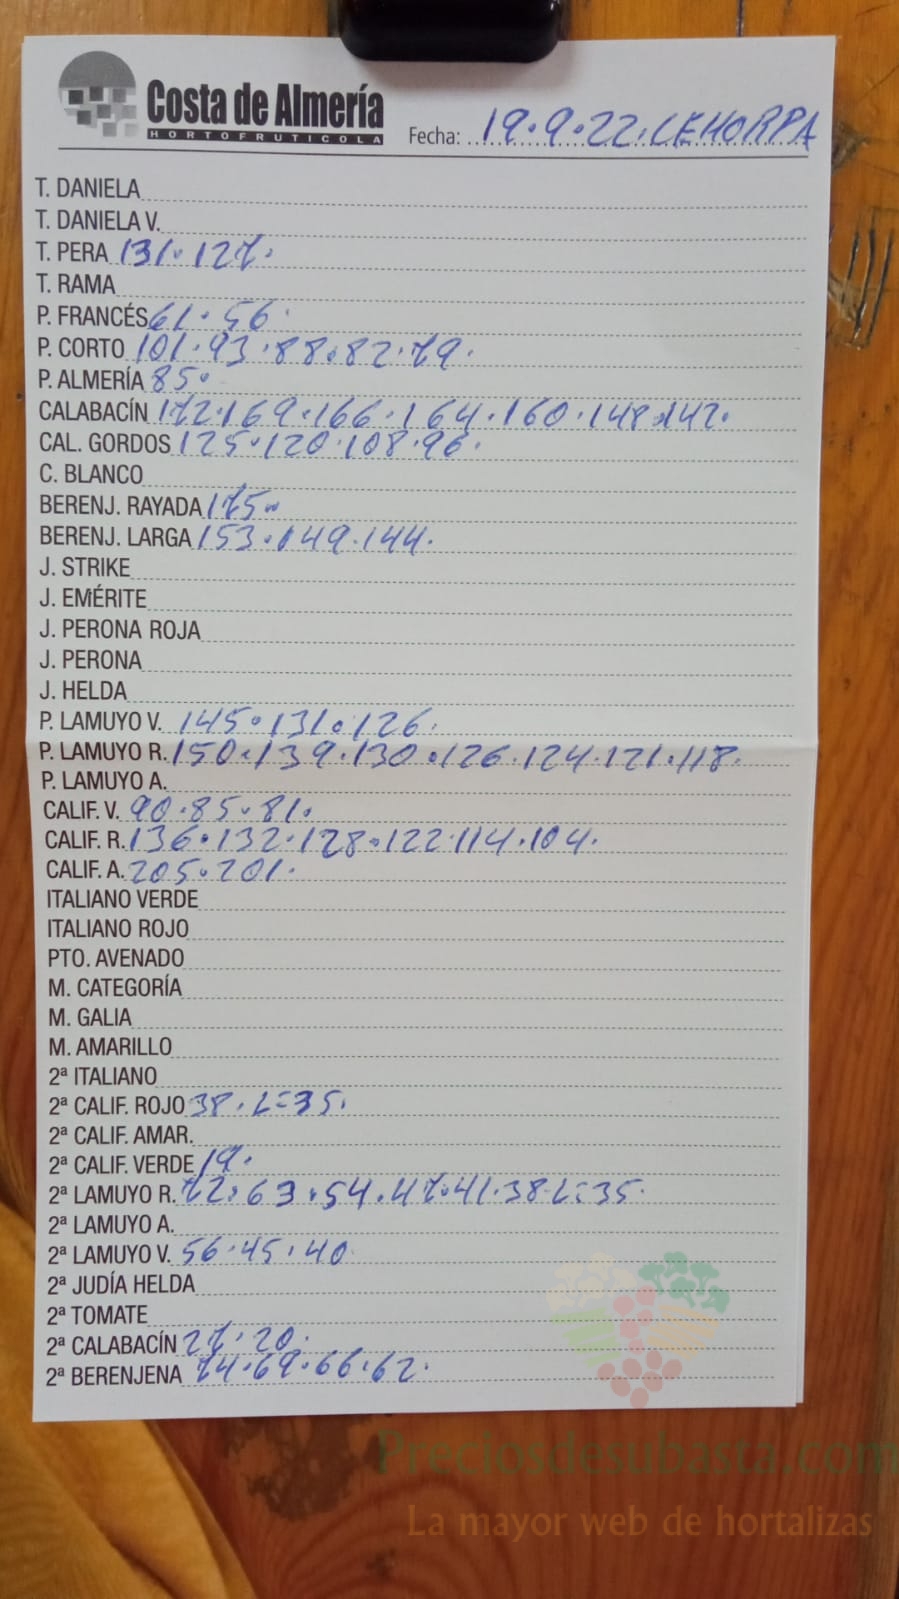 Costa de Almería
HORTOFRUTICOLA
Fecha: 19.9.22. CEHORPA
T. DANIELA
T. DANIELA V.
T. PERA 131. 127.
T. RAMA
P. FRANCÉS 61. 56.
P. CORTO 101. 93. 88. 82. 79.
P. ALMERÍA 85.
CALABACÍN 172. 169. 166. 164. 160. 148. 142.
CAL. GORDOS 125. 120. 108. 96.
C. BLANCO
BERENJ. RAYADA 175.
BERENJ. LARGA 153. 149. 144.
J. STRIKE
J. EMÉRITE
J. PERONA ROJA
J. PERONA
J. HELDA
P. LAMUYO V. 145. 131. 126.
P. LAMUYO R. 150. 139. 130. 126. 124. 121. 118.
P. LAMUYO A.
CALIF. V. 90. 85. 81.
CALIF. R. 136. 132. 128. 122. 114. 104.
CALIF. A. 205. 201.
ITALIANO VERDE
ITALIANO ROJO
PTO. AVENADO
M. CATEGORÍA
M. GALIA
M. AMARILLO
2ª ITALIANO
2ª CALIF. ROJO 38. L=35.
2ª CALIF. AMAR.
2ª CALIF. VERDE 19.
2ª LAMUYO R. 72. 63. 54. 47. 41. 38. L=35.
2ª LAMUYO A.
2ª LAMUYO V. 56. 45. 40
2ª JUDÍA HELDA
2ª TOMATE
2ª CALABACÍN 27. 20.
2ª BERENJENA 74. 69. 66. 62.
Preciosdesubasta.com
La mayor web de hortalizas